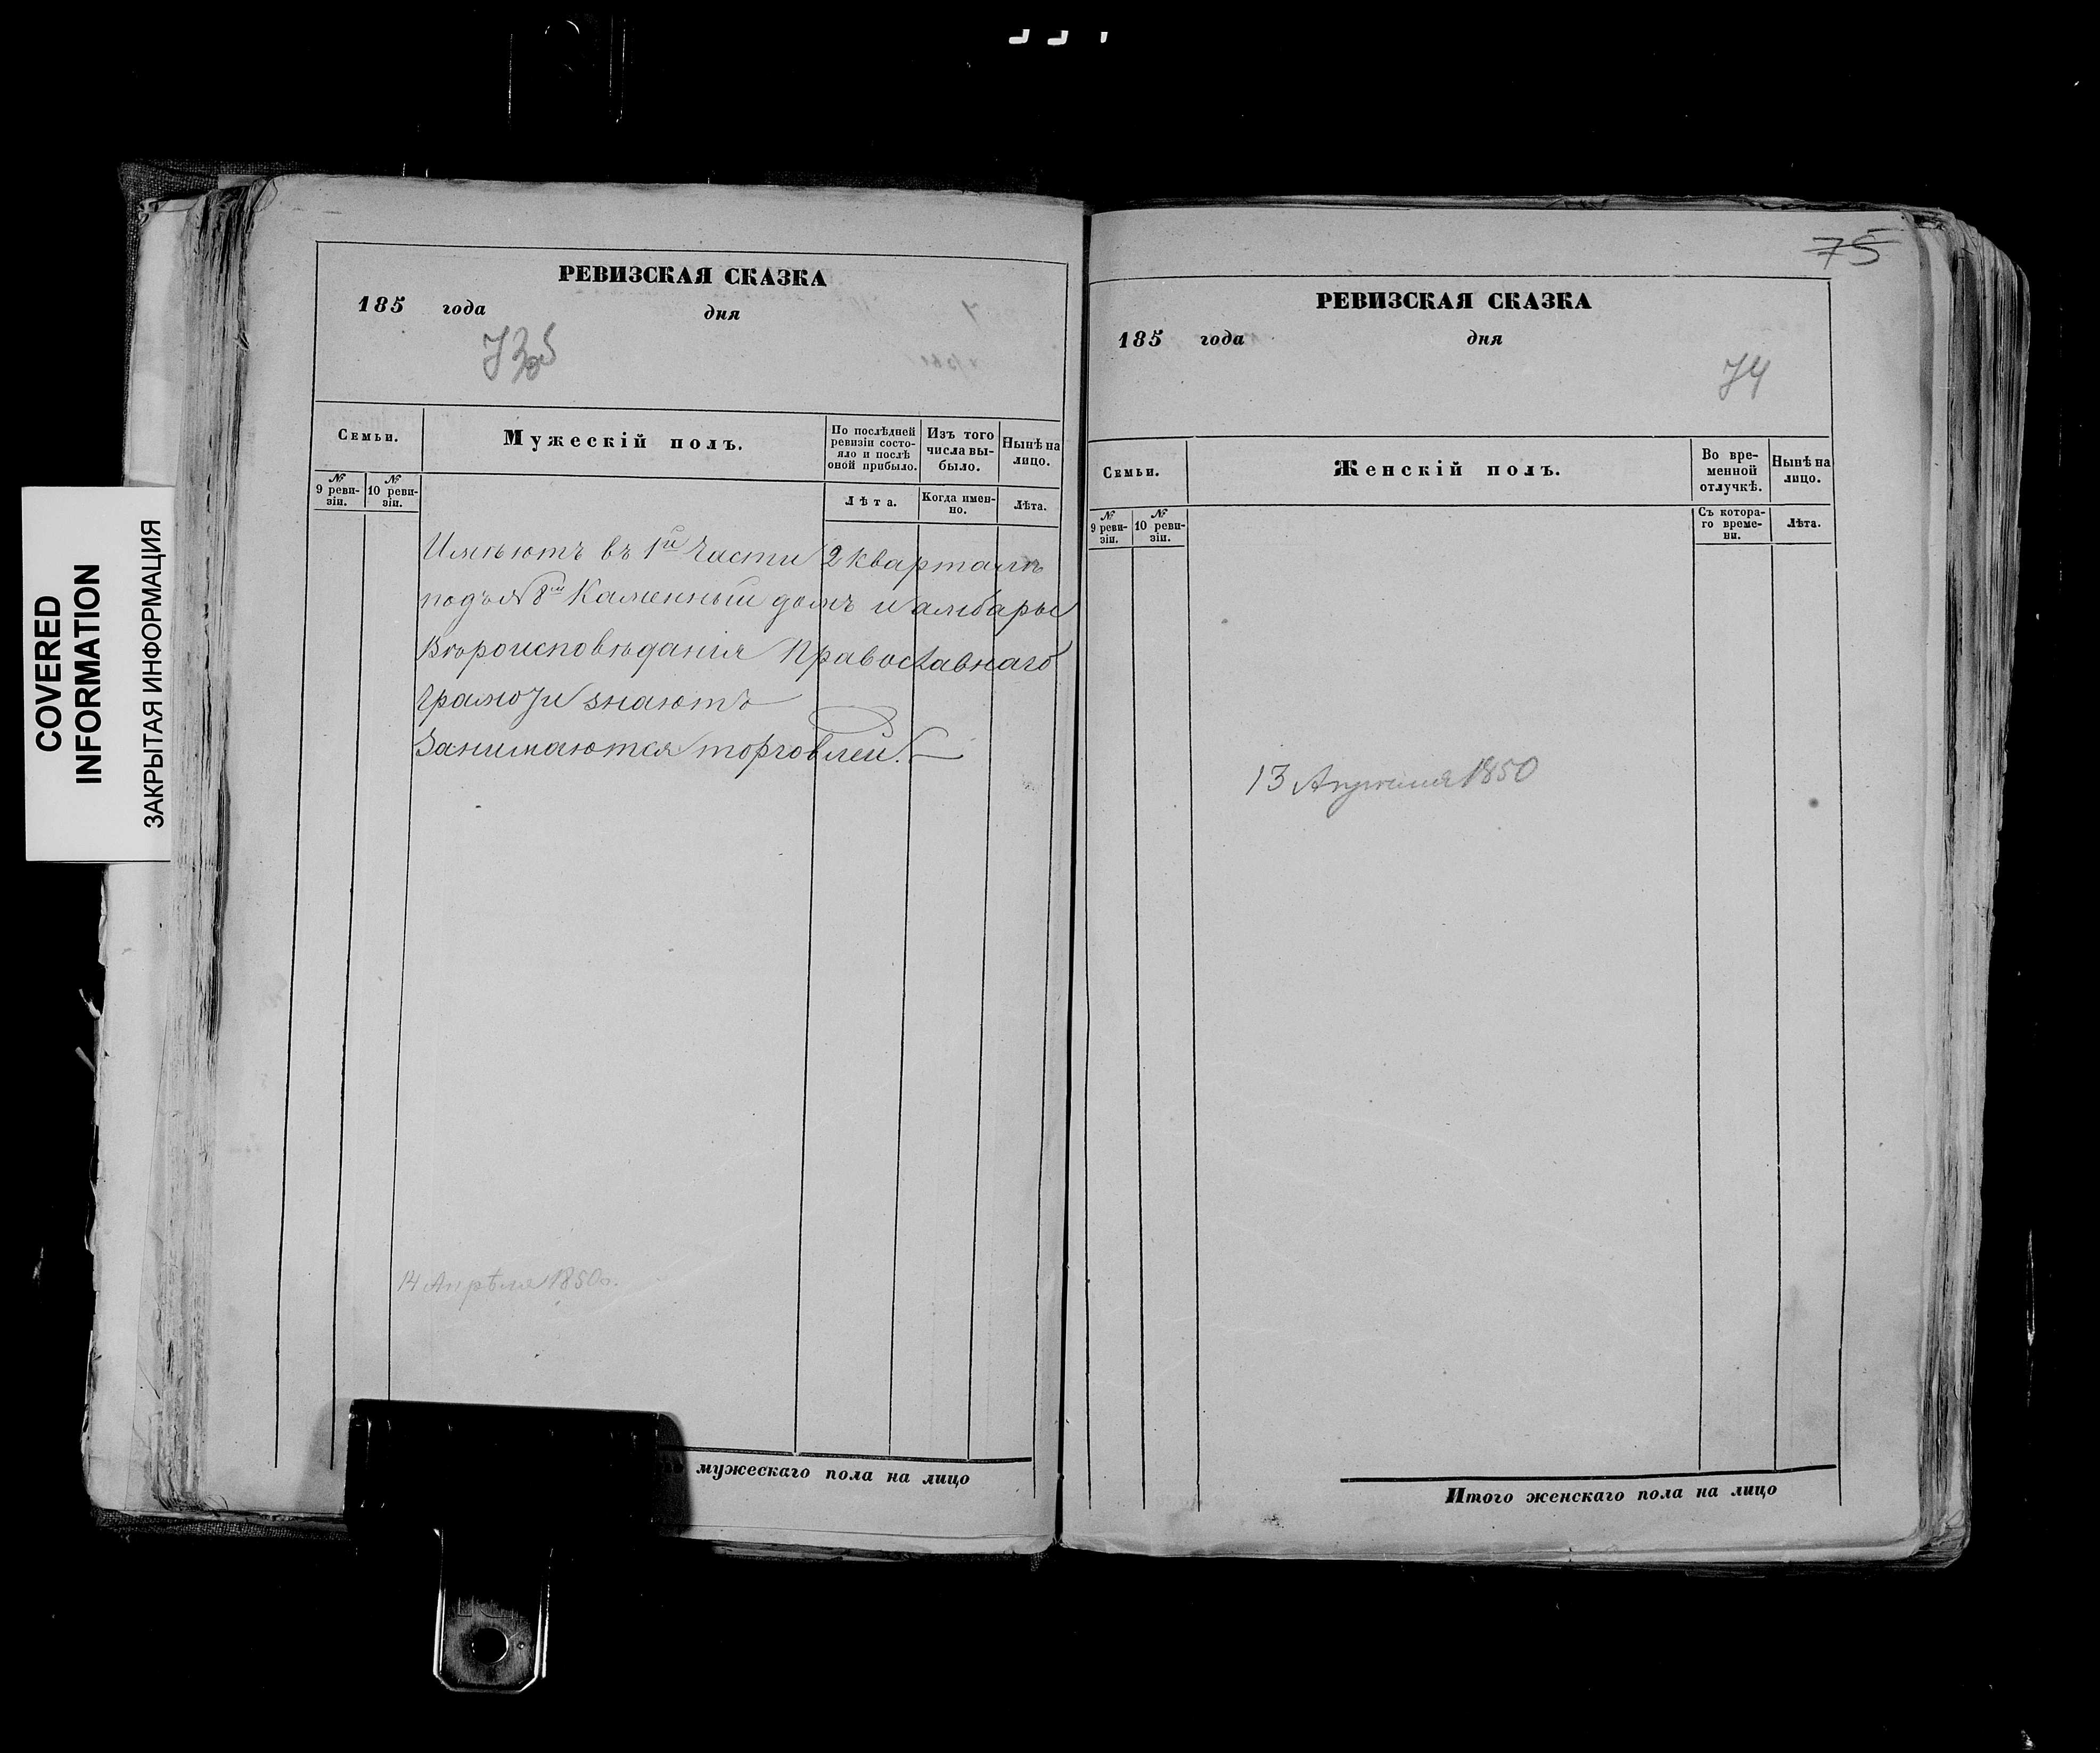 COVERED
INFORMATION
ЗАКРЫТАЯ ИНФОРМАЦИЯ
РЕВИЗСКАЯ СКАЗКА
185 года дня
73об
Семьи.
Мужескій полъ.
По послѣдней
ревизіи состо-
яло и послѣ
оной прибыло.
Изъ того
числа вы-
было.
Нынѣ на
лицо.
№
9 реви-
зіи.
№
10 реви-
зіи.
Лѣта.
Когда имен-
но.
Лѣта.
Имѣютъ въ 1й Части 2 кварталѣ
подъ № 8м Каменный домъ и амбары
Вѣроисповѣданія Православнаго
Грамоту знаютъ
Занимаются торговлей.
14 Апрѣля 1850г.
мужескаго пола на лицо
75
РЕВИЗСКАЯ СКАЗКА
185 года дня
74
Семьи.
Женскій полъ.
Во вре-
менной
отлучкѣ.
Нынѣ на
лицо.
№
9 реви-
зіи.
№
10 реви-
зіи.
Съ котора-
го време-
ни.
Лѣта.
13 Апрѣля 1850
Итого женскаго пола на лицо